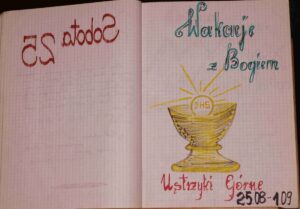 Sobota 25
Wakacje
z Bogiem
JHS
Ustrzyki Górne
25.08-1.09